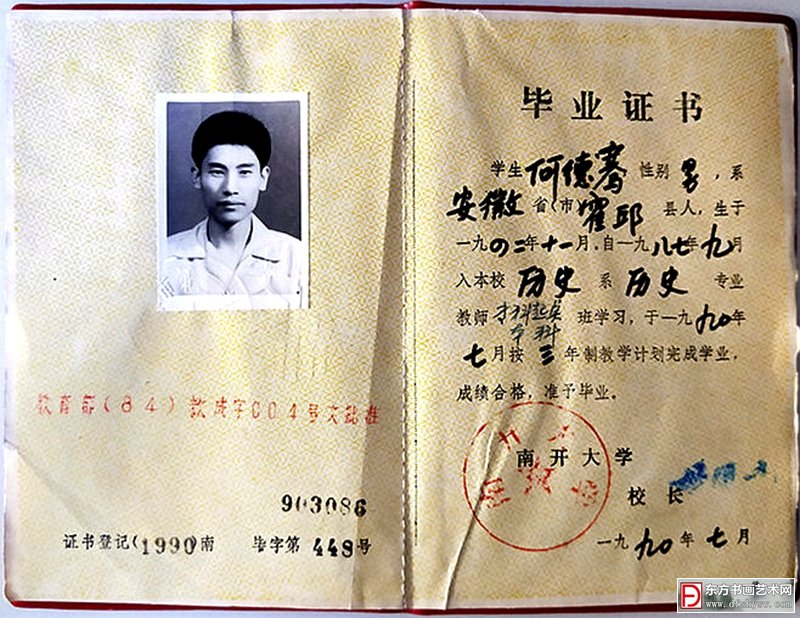 教育部(84)教成字004号文批准
903086
证书登记(1990)南 毕字第 449号
毕业证书
学生 何德骞 性别 男，系
安徽 省(市 霍邱 县人，生于
一九四二年十一月。自一九八七年九月
入本校 历史 系 历史 专业
教师 专科起点本科 班学习，于一九九〇年
七月按 三 年制教学计划完成学业，
成绩合格，准予毕业。
南开大学
校长
一九九〇年七月
东方书画艺术网